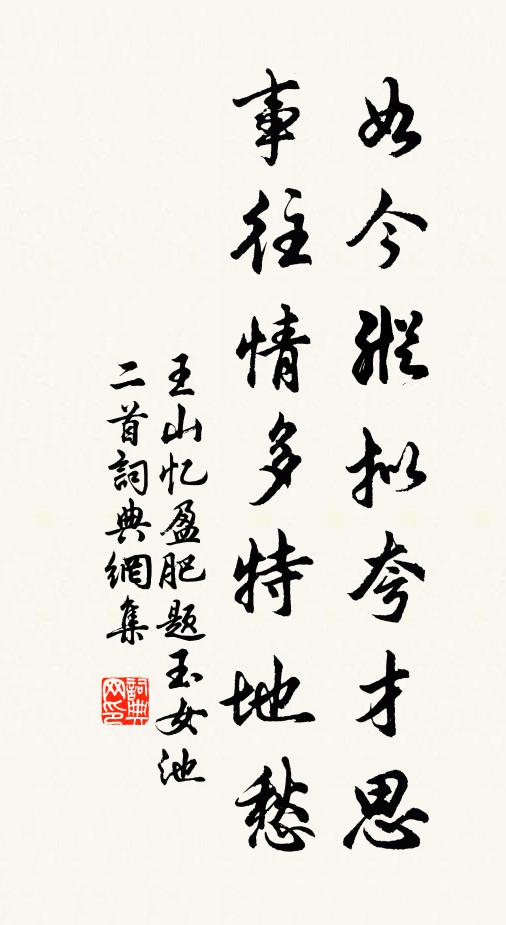 如今縱拟夸才思
事往情多特地愁
王山忆盈盈肥题玉女池
二首詞典網集
詞典网印